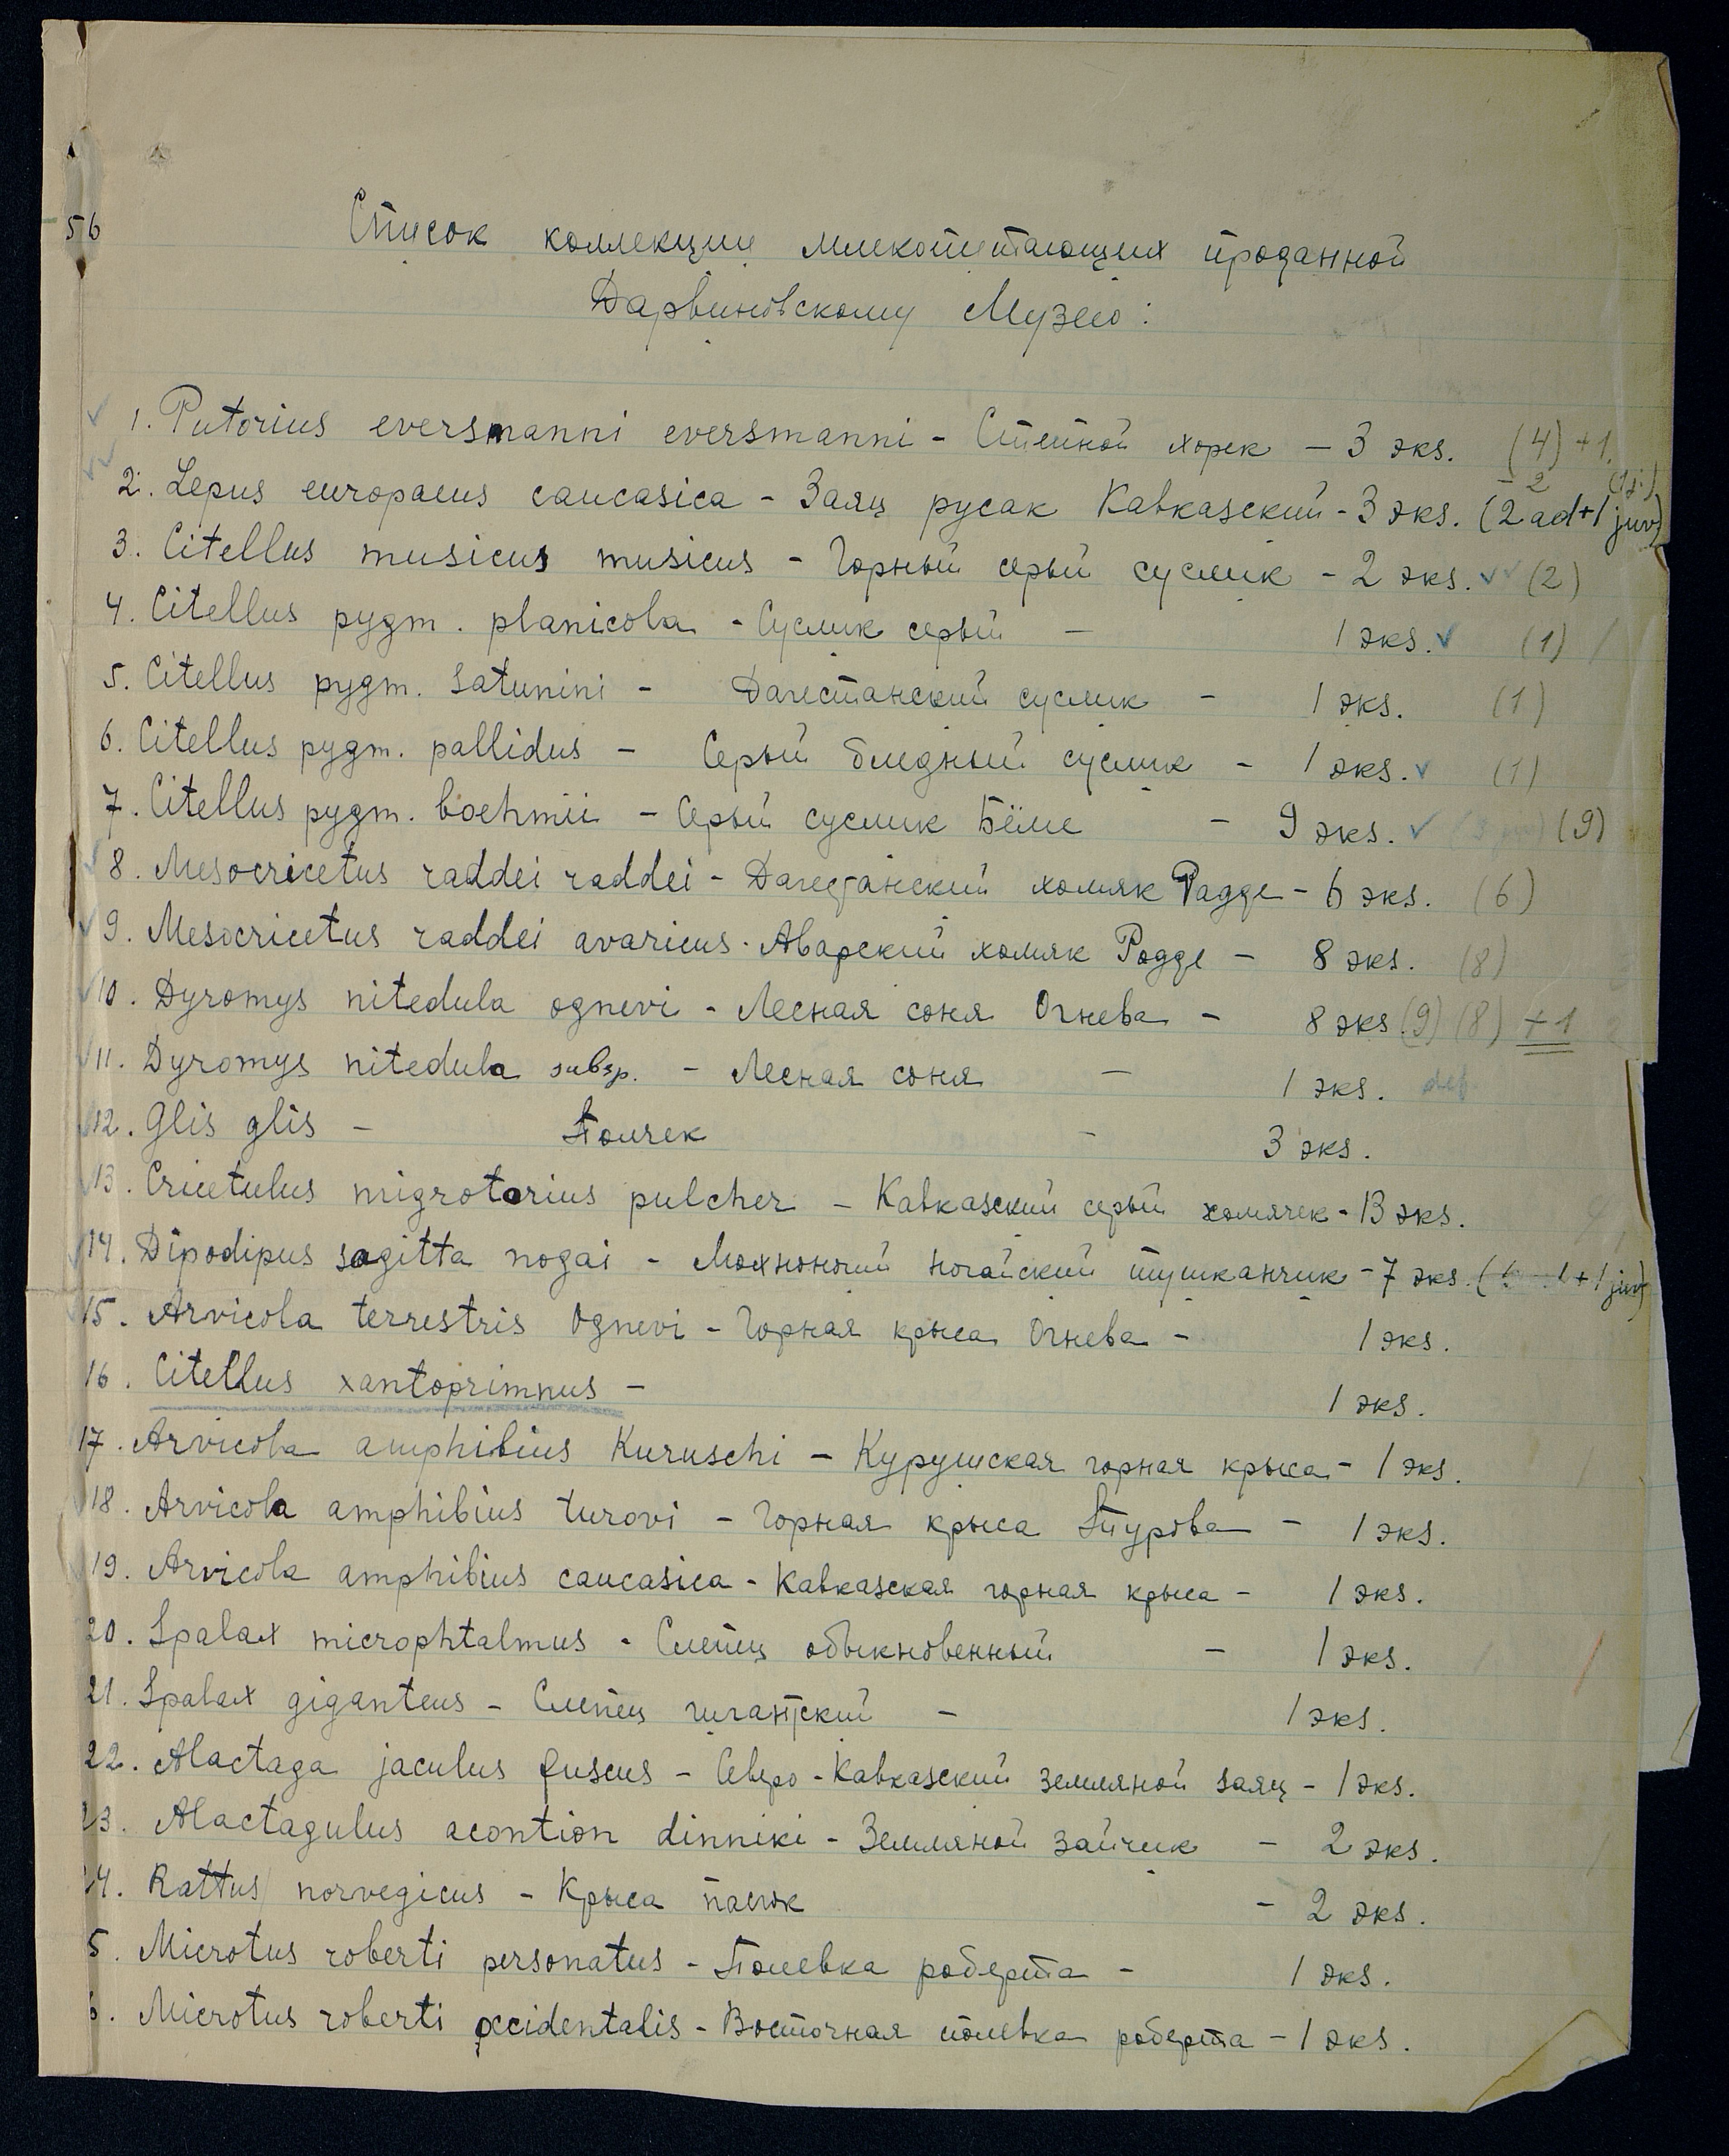 56
Список коллекции млекопитающих проданной
Дарвиновскому Музею:
1. Putorius eversmanni eversmanni - Степной хорек - 3 экз. (4) + 1.
2. Lepus europaeus caucasica - Заяц русак Кавказский - 3 экз. (2 ad + 1 juv)
3. Citellus musicus musicus - Горный серый суслик - 2 экз. (2)
4. Citellus pygm. planicola - Суслик серый - 1 экз. (1)
5. Citellus pygm. satunini - Дагестанский суслик - 1 экз. (1)
6. Citellus pygm. pallidus - Серый бледный суслик - 1 экз. (1)
7. Citellus pygm. boehmii - Серый суслик Бёме - 9 экз. (9)
8. Mesocricetus raddei raddei - Дагестанский хомяк Радде - 6 экз. (6)
9. Mesocricetus raddei avaricus - Аварский хомяк Радде - 8 экз. (8)
10. Dyromys nitedula ognevi - Лесная соня Огнева - 8 экз. (9) (8) + 1
11. Dyromys nitedula subsp. - Лесная соня - 1 экз. def
12. Glis glis - Полчек - 3 экз.
13. Cricetulus migrotorius pulcher - Кавказский серый хомячек - 13 экз.
14. Dipodipus sagitta nogai - Мохноногий ногайский тушканчик - 7 экз. ( + 1 juv)
15. Arvicola terrestris Ognevi - Горная крыса Огнева - 1 экз.
16. Citellus xantoprimnus - 1 экз.
17. Arvicola amphibius Kuruschi - Курушская горная крыса - 1 экз.
18. Arvicola amphibius turovi - Горная крыса Турова - 1 экз.
19. Arvicola amphibius caucasica - Кавказская горная крыса - 1 экз.
20. Spalax microphtalmus - Слепец обыкновенный - 1 экз.
21. Spalax giganteus - Слепец гигантский - 1 экз.
22. Alactaga jaculus fuscus - Северо-Кавказский земляной заяц - 1 экз.
23. Alactagulus acontion dinniki - Земляной зайчик - 2 экз.
24. Rattus norvegicus - Крыса пасюк - 2 экз.
5. Microtus roberti personatus - Полевка роберта - 1 экз.
6. Microtus roberti occidentalis - Восточная полевка роберта - 1 экз.